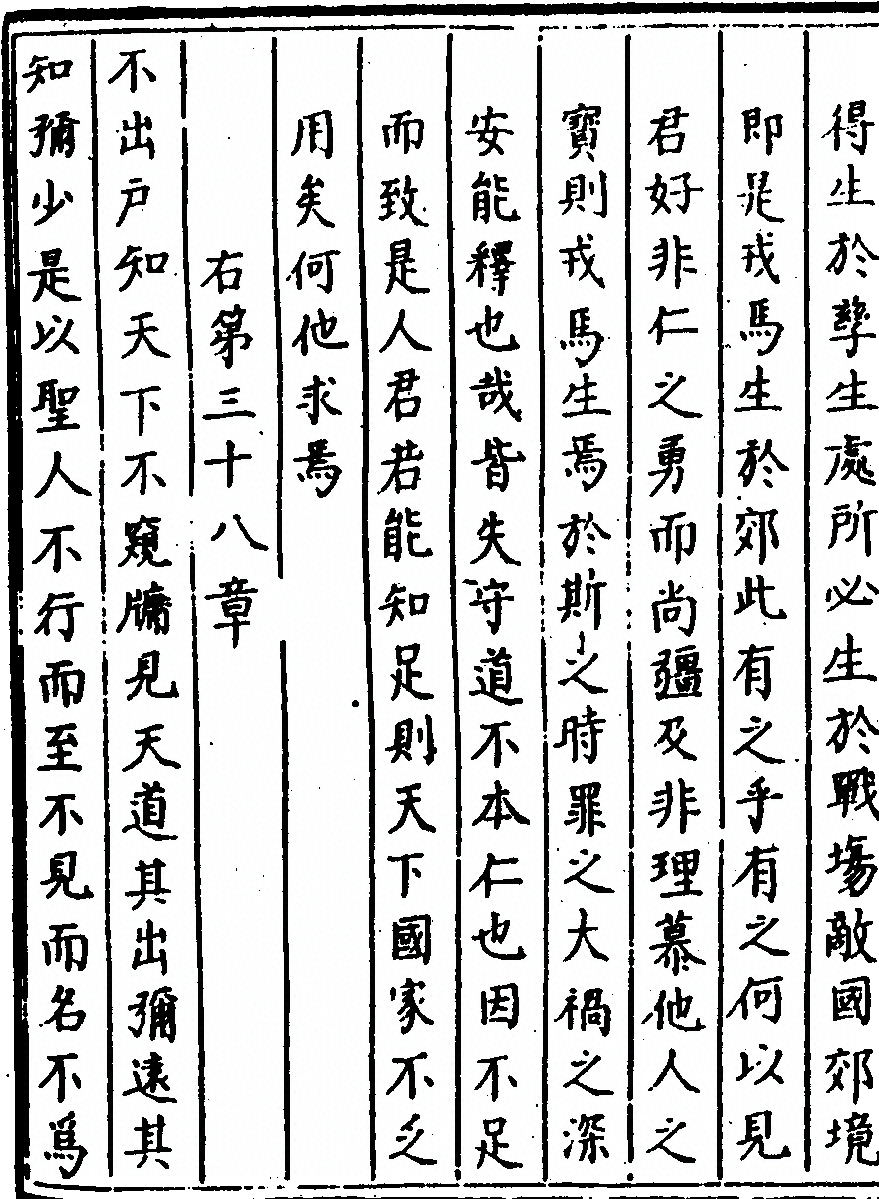 得生於孳生處所必生於戰場敵國郊境
即是戎馬生於郊此有之乎有之何以見
君好非仁之勇而尚疆及非理慕他人之
寶則戎馬生焉於斯之時罪之大禍之深
安能釋也哉皆失守道不本仁也因不足
而致是人君若能知足則天下國家不乏
用矣何他求焉
右第三十八章
不出戶知天下不窺牗見天道其出彌遠其
知彌少是以聖人不行而至不見而名不爲